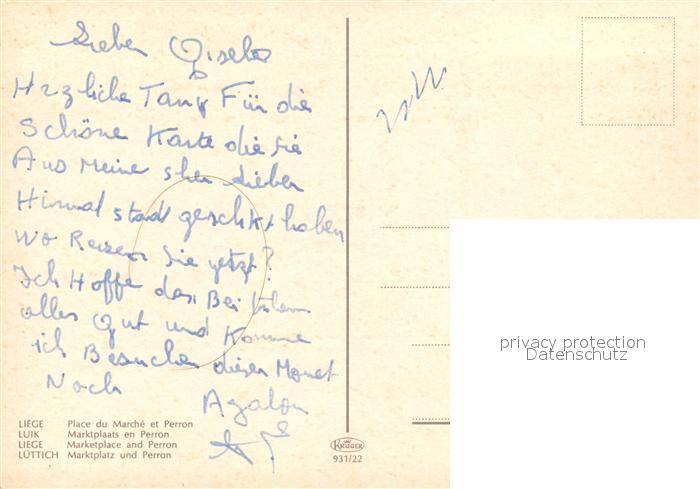 Lieber Gisela
Herzliche Tank Für die
Schöne Karte die sie
Aus Meine sher lieben
Himmal stadt geschikt haben
Wo Reisen Sie yetzt?
Ich Hoffe das Bei
alles Gut und Komme
ich Besuchen diesen Monat
Noch
LIÈGE Place du Marché et Perron
LUIK Marktplaats en Perron
LIEGE Marketplace and Perron
LÜTTICH Marktplatz und Perron
KRÜGER
931/22
privacy protection
Datenschutz